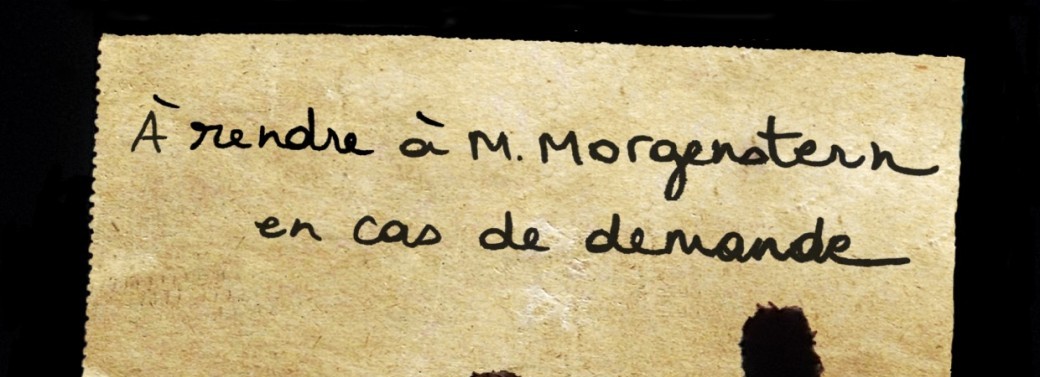 À rendre à M. Morgenstern
en cas de demande